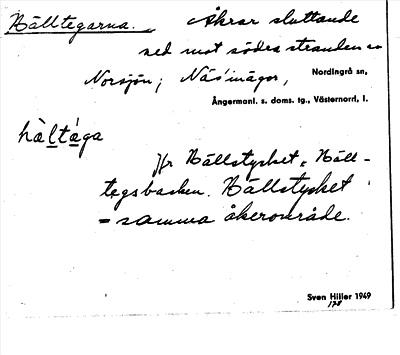 Hälltegarna. Åkrar sluttande
ned mot södra stranden av
Norsjön; Näs'inägor, Nordingrå sn,
Ångermanl. s. doms. tg., Västernorrl. l.
hàltæ̀ga
Jfr Hällstycket, Häll-
tegsbacken. Hällstycket
= samma åkerområde.
Sven Hiller 1949
178